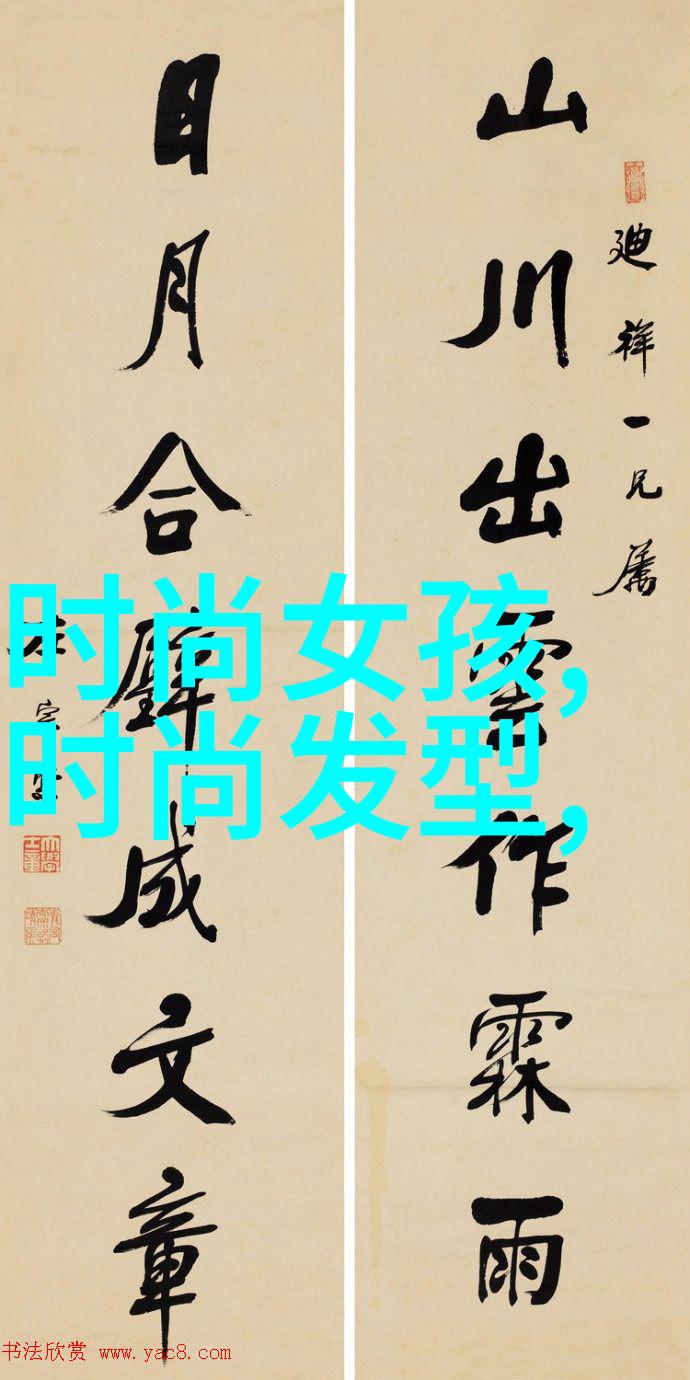 廸祥一兄屬
山川出雲作霖雨
日月合璧成文章
左宗棠
时尚女孩,
时尚发型,
书法欣赏 www.yac8.com